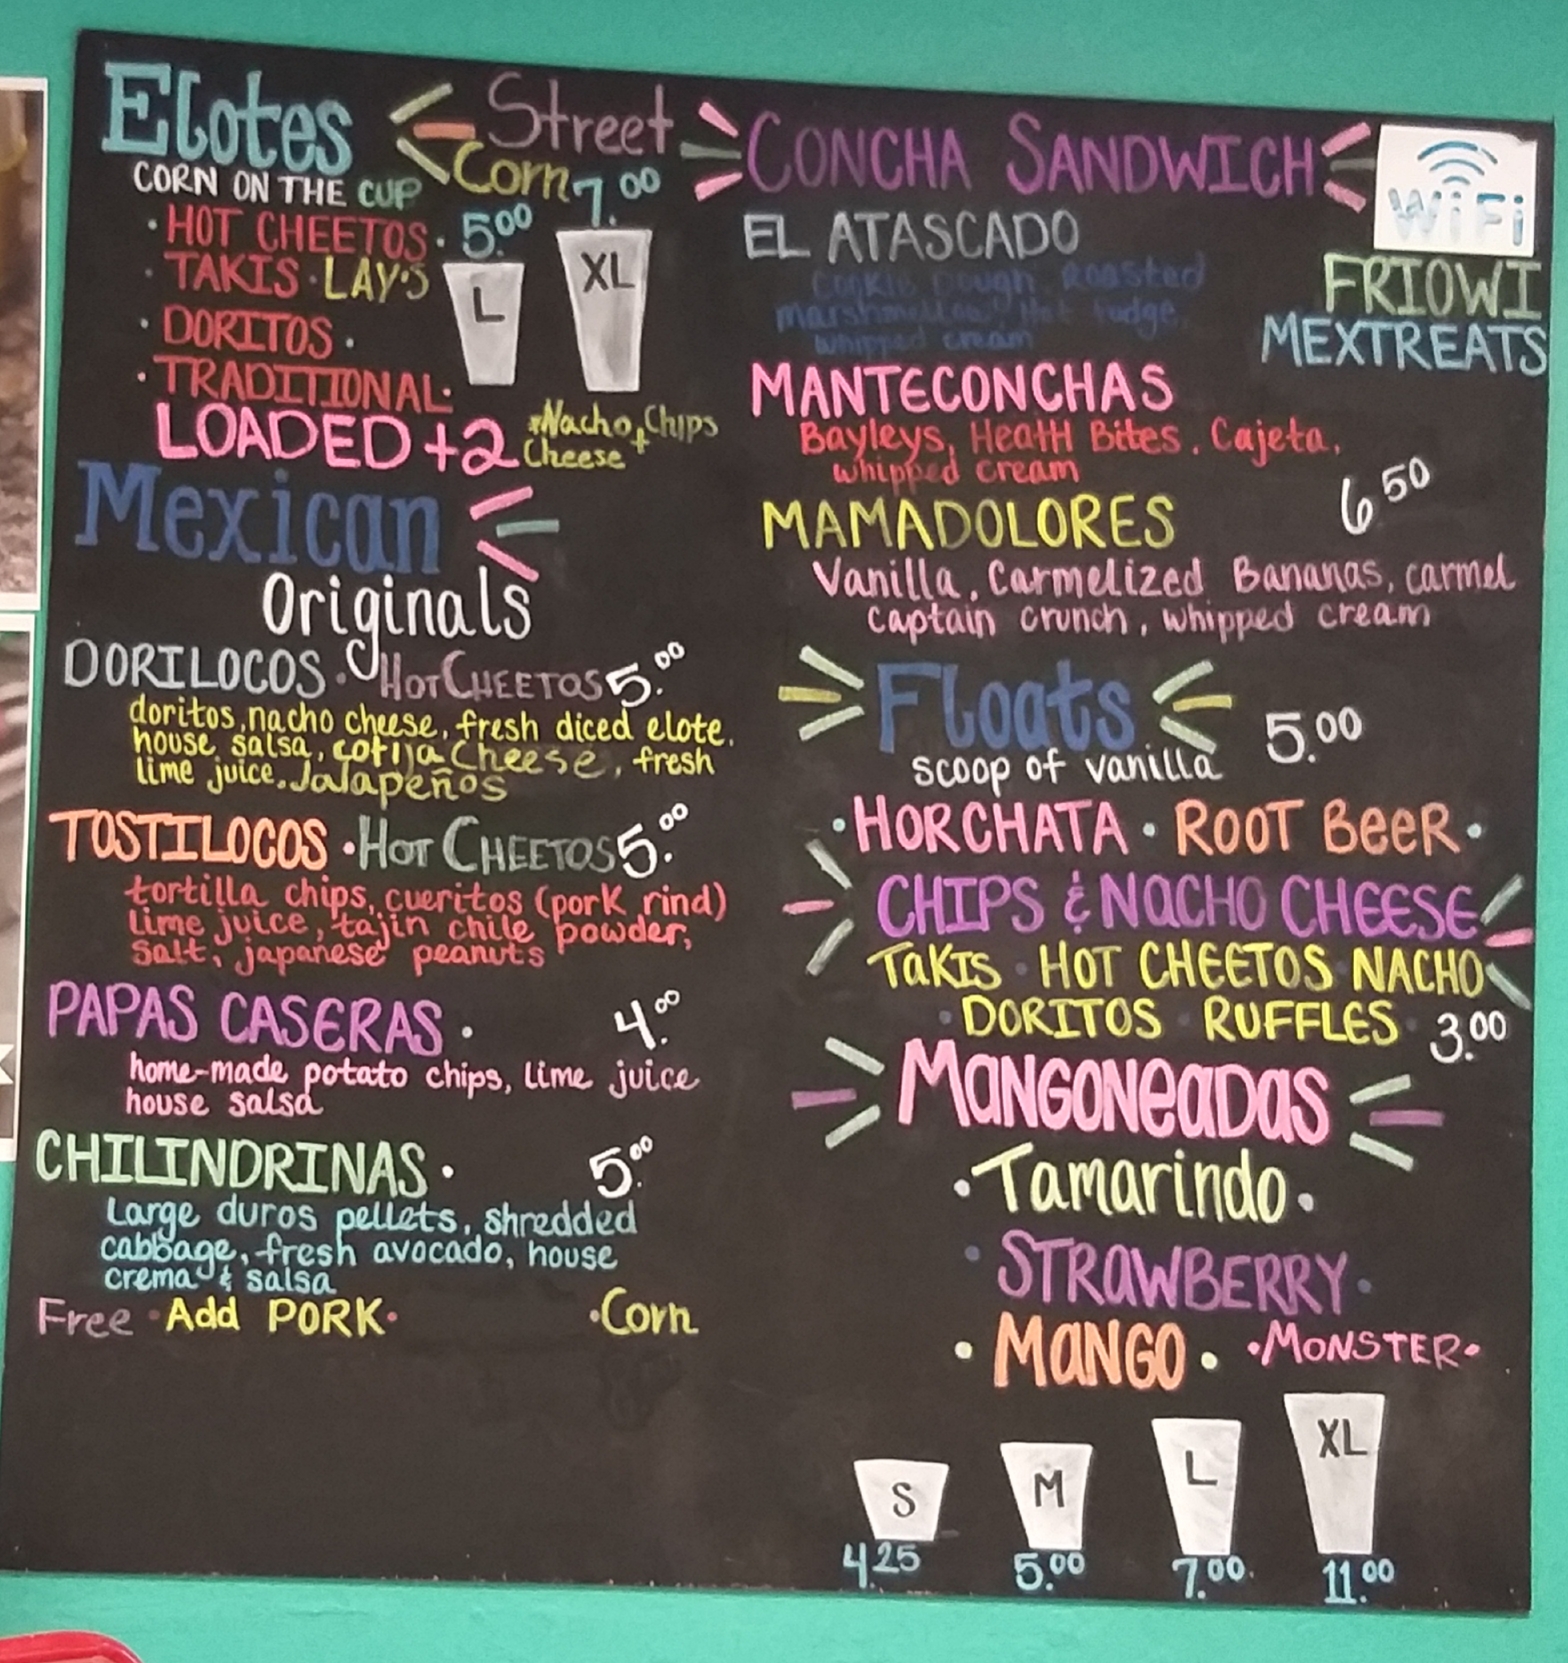 Elotes
Street
Corn
CORN ON THE CUP
· HOT CHEETOS ·
· TAKIS · LAY'S
· DORITOS ·
· TRADITIONAL ·
5.00
7.00
L
XL
LOADED +2
Nacho Chips
+
Cheese
Mexican
Originals
DORILOCOS · HOT CHEETOS 5.00
doritos, nacho cheese, fresh diced elote,
house salsa, cotija Cheese, fresh
lime juice, Jalapeños
TOSTILOCOS · HOT CHEETOS 5.00
tortilla chips, cueritos (pork rind)
lime juice, tajin chile powder,
salt, japanese peanuts
PAPAS CASERAS · 4.00
home-made potato chips, lime juice
house salsa
CHILINDRINAS · 5.00
Large duros pellets, shredded
cabbage, fresh avocado, house
crema & salsa
Free · Add PORK · · Corn
CONCHA SANDWICH
WiFi
FRIOWI
MEXTREATS
EL ATASCADO
Cookie Dough, Roasted
marshmellow, Hot fudge,
whipped cream
MANTECONCHAS
Bayleys, Heath Bites, Cajeta,
whipped cream
6.50
MAMADOLORES
Vanilla, Carmelized Bananas, carmel
captain crunch, whipped cream
Floats
scoop of vanilla 5.00
· HORCHATA · ROOT BEER ·
CHIPS & NACHO CHEESE
TAKIS · HOT CHEETOS NACHO
· DORITOS · RUFFLES 3.00
MANGONEADAS
· Tamarindo ·
· STRAWBERRY ·
· MANGO · · MONSTER ·
S M L XL
4.25 5.00 7.00 11.00